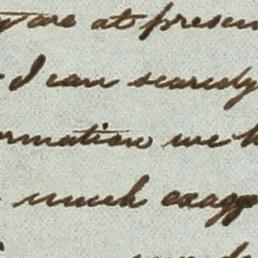 are at presen
I can scarcely
rmation we h
much exagge